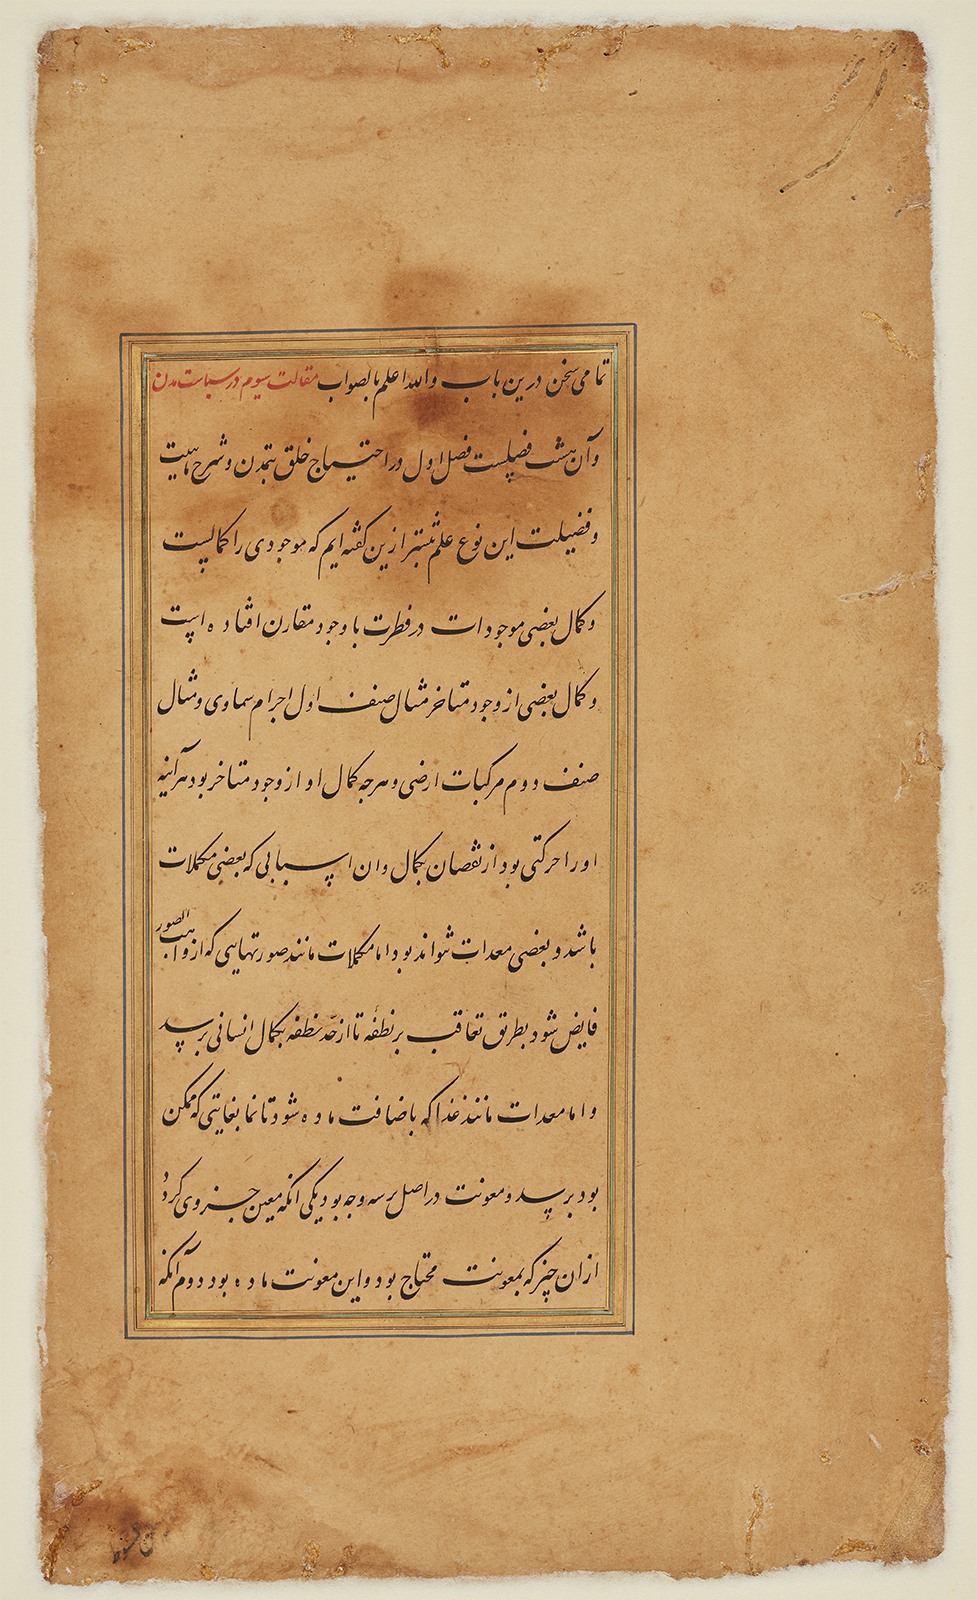 تمامی سخن درین باب والله اعلم بالصواب مقالت سیوم در سیاست مدن
وآن هشت فصلست فصل اول در احتیاج خلق بتمدن و شرح ماهیت
و فضیلت این نوع علم بیشتر ازین گفته ایم که موجودی را کمالیست
و کمال بعضی موجودات در فطرت با وجود مقارن افتاده است
و کمال بعضی از وجود متاخر مثال صنف اول اجرام سماوی و مثال
صنف دوم مرکبات ارضی و هرچه کمال او از وجود متاخر بود هرآینه
او را حرکتی بود از نقصان بکمال و ان اسبابی که بعضی مکملات
باشد و بعضی معدات نتواند بود اما مکملات مانند صورتهایی که از واهب الصور
فایض شود بطریق تعاقب بر نطفه تا از حد نطفه بکمال انسانی برسد
و اما معدات مانند غذا که باضافت ماده شود تا نما بغایتی که ممکن
بود برسد و معونت در اصل بر سه وجه بود یکی انکه معین جزوی کردد
ازان چیز که بمعونت محتاج بود و این معونت ماده بود دوم آنکه